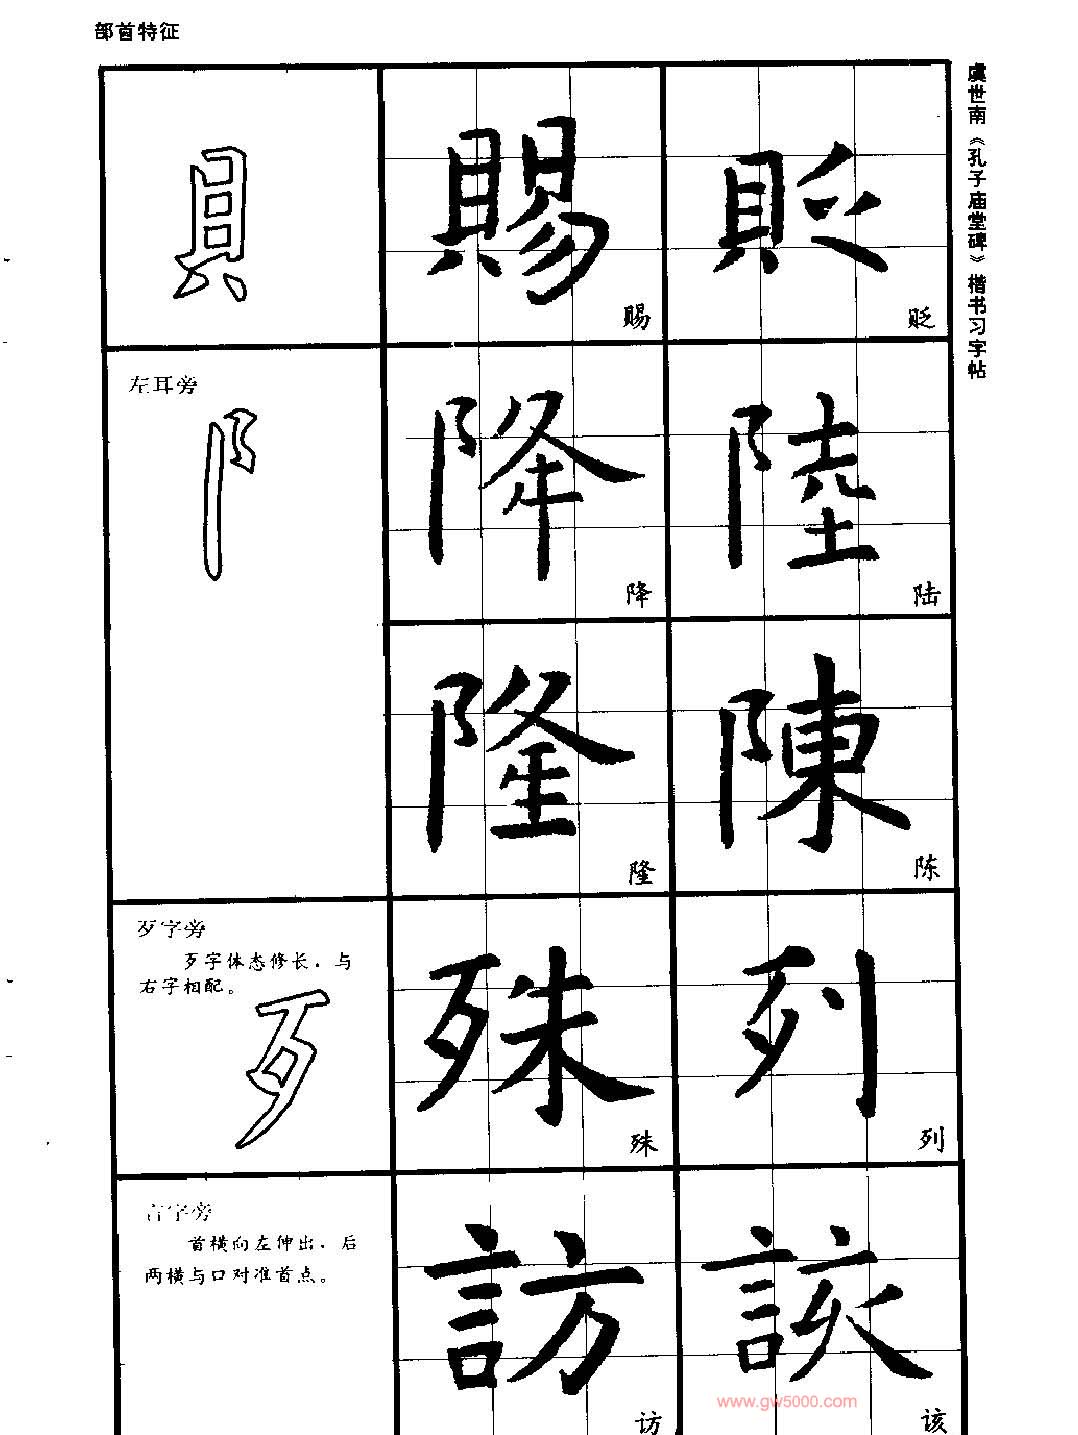 部首特征
虞世南《孔子庙堂碑》楷书习字帖
賜 貶
赐 贬
左耳旁
降 陸
降 陆
隆 陳
隆 陈
歹字旁
歹字体态修长，与
右字相配。
歹
殊 列
殊 列
言字旁
首横向左伸出，后
两横与口对准首点。
訪 該
访 该
www.gw5000.com